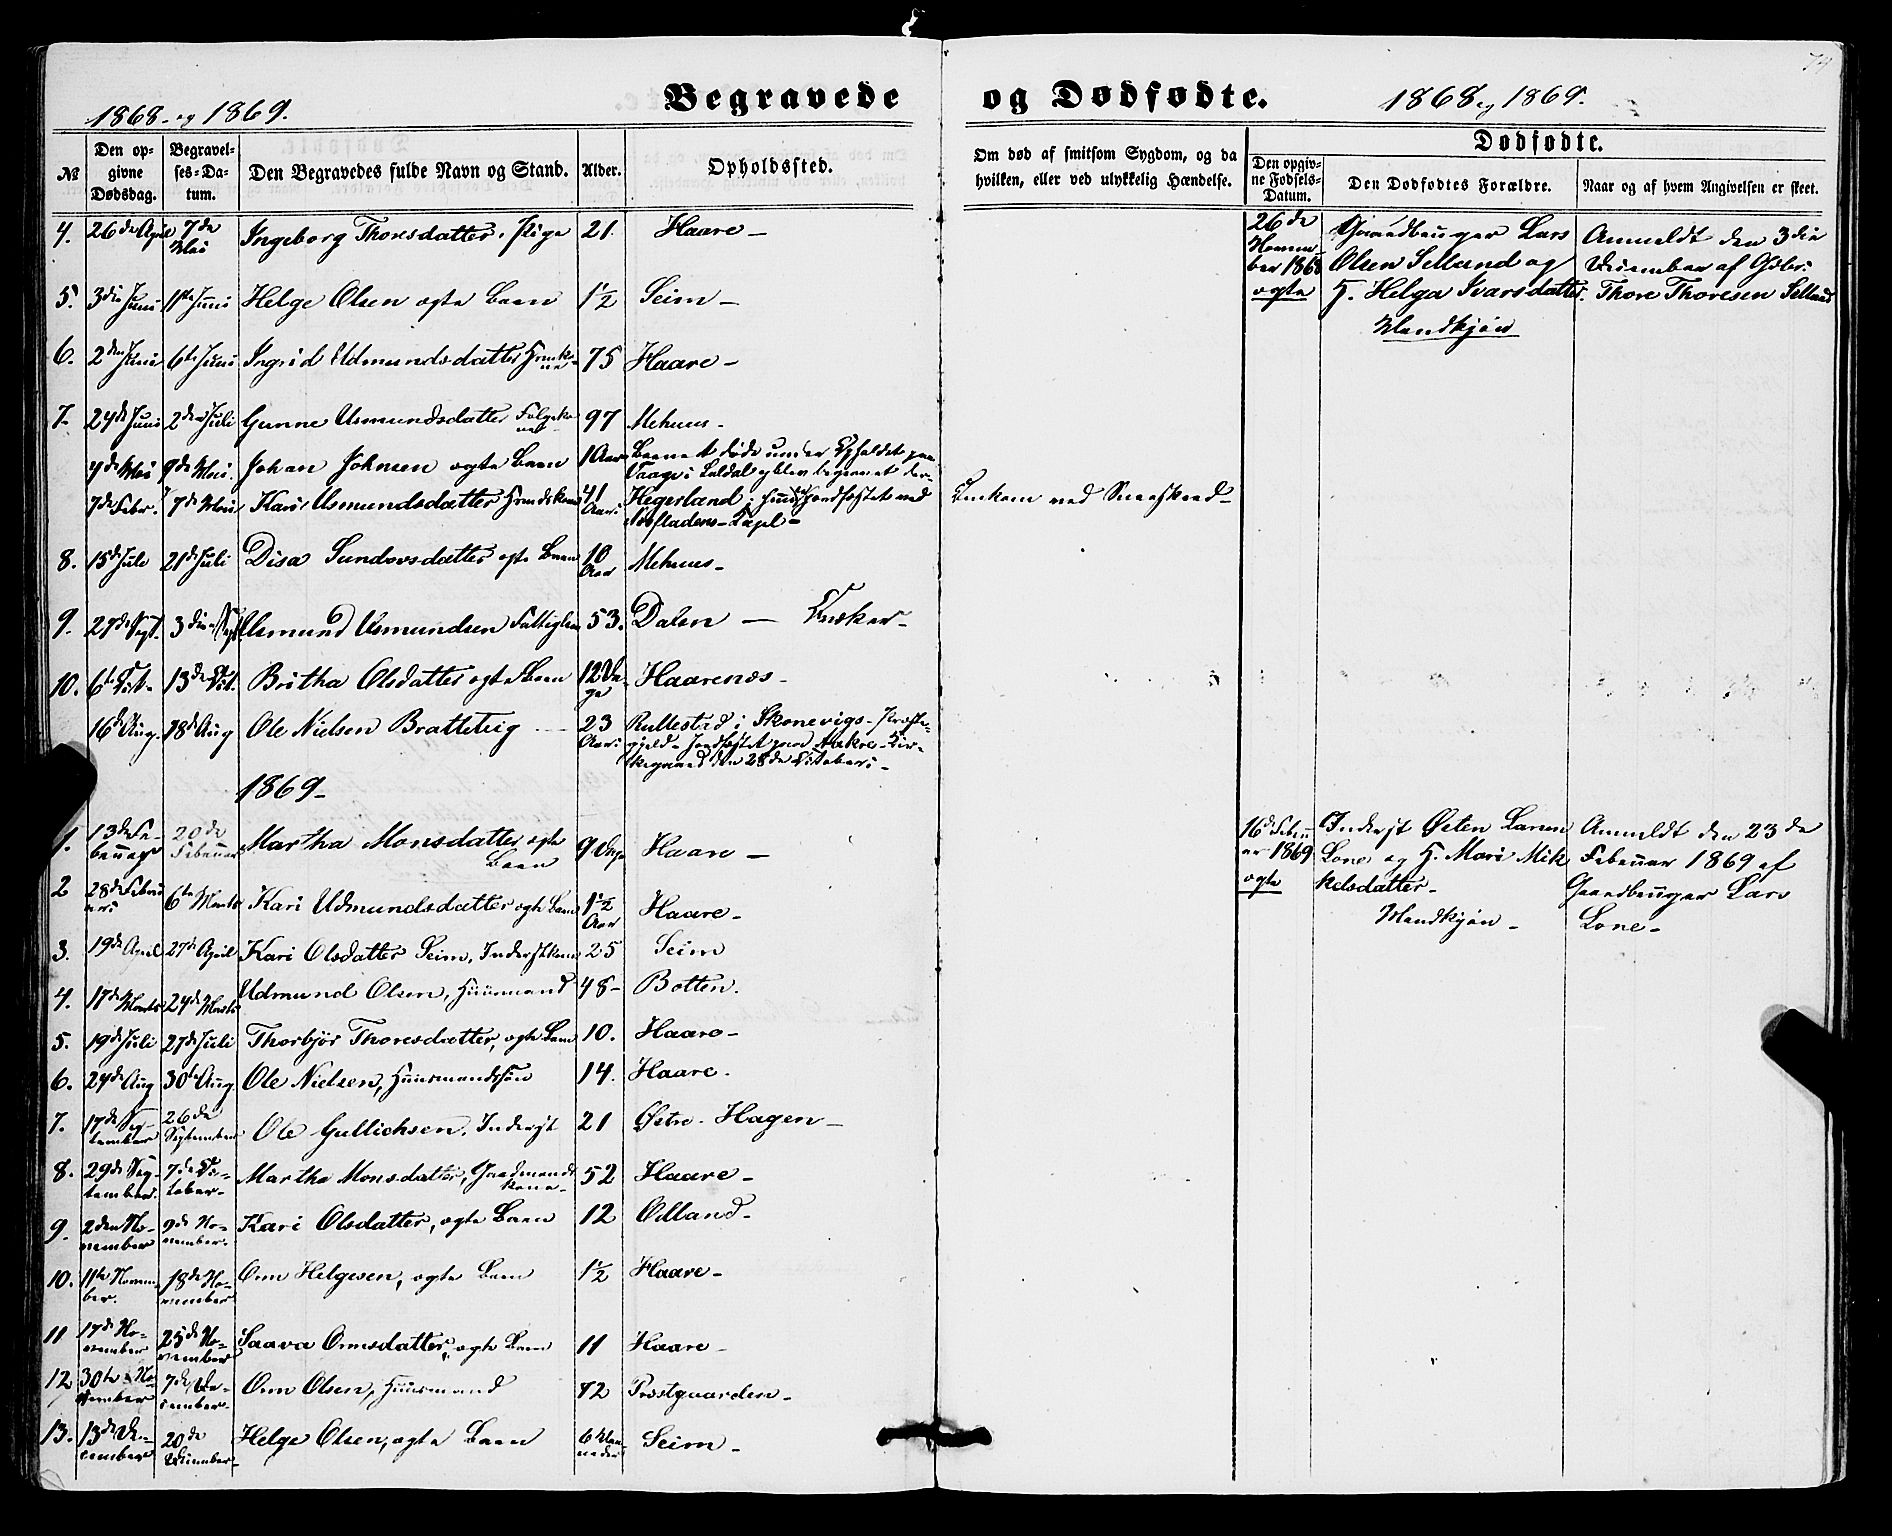 74
1868 og 1869. Begravede og Dødfødte. 1868 og 1869.
№ | Den opgivne Dødsdag. | Begravelses-Datum. | Den Begravedes fulde Navn og Stand. | Alder. | Opholdssted. | Om død af smitsom Sygdom, og da hvilken, eller ved ulykkelig Hændelse. | Dødfødte. | Den opgivne Fødsels-Datum. | Den Dødfødtes Forældre. | Naar og af hvem Angivelsen er skeet.
4. 26de April 7de Mai Ingeborg Thoresdatter, Pige 21. Haare –
5. 3die Juni 11te Juni Helge Olsen ægte Barn 1½ Seim –
6. 2den Juni 6te Juni Ingrid Udmundsdatter 75 Haare –
7. 24de Juni 2den Juli Gunne Asmundsdatter 97 Mehuus –
4de Mai 9de Mai. Johan Johnsen ægte Barn 1 Aar Barnet døde under Opholdet paa
Vaage i Suldal og blev begravet der –
7de Febr. 7de Mai Kari Asmundsdatter 41 Aar: Hegerland, jordfæstet ved
Capel – Omkom ved Sneeskred –
8. 15de Juli 21de Juli Disa Sundovsdatter ægte Barn 10 Aar Mehuus –
9. 27de Sept. 3die Asmund Asmundsen Fattiglem 53. Dalen –
10. 6te Oct. 13de Oct. Britha Olsdatter ægte Barn 12 Dage Haarenæs –
16de Aug. 18de Aug Ole Nielsen Bratteteig – 23 Aar: Rullestad i Skonevigs – Præste-
gjeld – Jordfæstet paa Aakre – Kir-
kegaard den 28de October –
26de November 1868 ægte
Gaardbruger Lars
Olsen Selland og
H. Helga Ivarsdatter.
Mandkjøn
Anmeldt den 3die
December af
Thore Thoresen Selland
1869 –
1. 13de Februar 20de Februar Martha Monsdatter ægte Barn 9 Dage Haare –
2 28de Februar 6te Marts Kari Udmundsdatter ægte Barn 1½ Aar Haare –
3. 19de April 27de April Kari Olsdatter Seim, Inderstkone 25 Seim
4. 17de Marts 24de Marts Udmund Olsen, Huusmand 48 – Botten.
5. 19de Juli 27de Juli Thorbjør Thoresdatter, ægte Barn 10. Haare –
6. 24de Aug 30te Aug. Ole Nielsen, Huusmandssøn 14. Haare.
7. 17de September 26de September Ole Gullichsen, Inderst 21 Østre – Hagen –
8. 29de September 7de October – Martha Monsdatter, Gaardmandskone – 52 Haare –
9. 2den November 9de November. Kari Olsdatter, ægte Barn 12 Ødland –
10. 11te November. 18de November Orm Helgesen, ægte Barn 1½ Haare –
11 17de November 25de November Saava Ormsdatter, ægte Barn 11 Haare –
12 30te November 7de December – Orm Olsen, Huusmand Præstgaarden –
13. 13de December 20de December – Helge Olsen, ægte Barn 6 Maaneder Seim –
16de Februar 1869 ægte
Inderst Østen Larsen
Lone og H. Mari Mik
kelsdatter –
Mandkjøn –
Anmeldt den 23de
Februar 1869 af
Gaardbruger Lars
Lone –